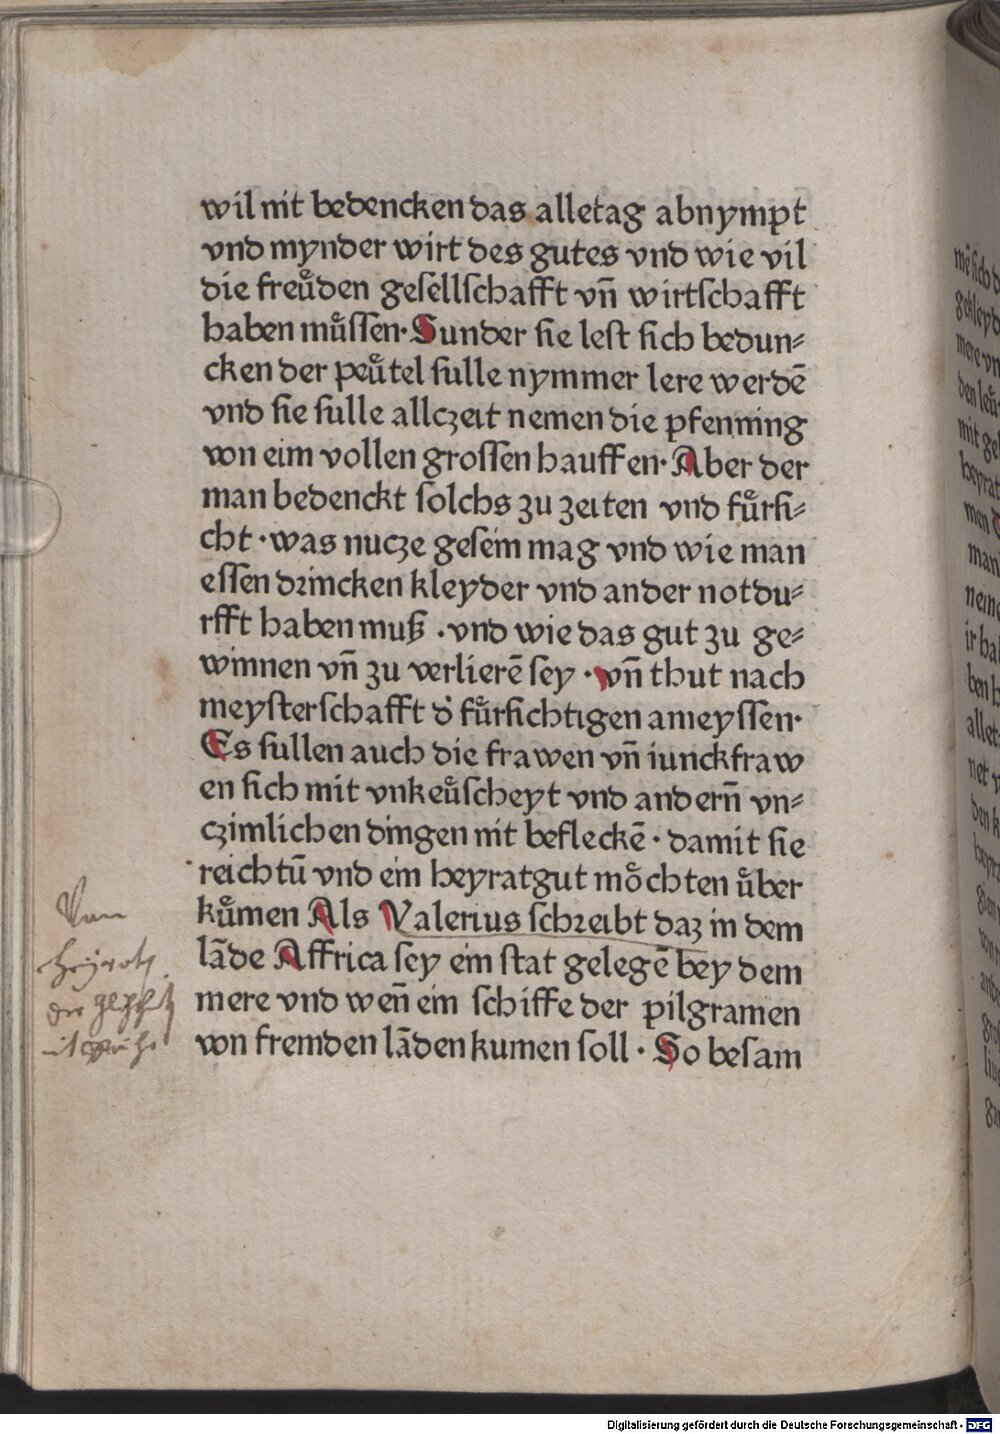 wil nit bedencken das alletag abnympt
vnd mynder wirt des gutes vnd wie vil
die freuͤden geſellſchafft vn̄ wirtſchafft
haben muͤſſen· Sunder ſie leſt ſich bedun⸗
cken der peuͤtel ſulle nymmer lere werdē
vnd ſie ſulle allczeit nemen die pfenning
von eim vollen groſſen hauffen· Aber der
man bedenckt ſolchs zu zeiten vnd fuͤrſi⸗
cht · was nucze geſein mag vnd wie man
eſſen drincken kleyder vnd ander notdu⸗
rfft haben muß · vnd wie das gut zu ge⸗
winnen vn̄ zu verlierē ſey · vn̄ thut nach
meyſterſchafft d' fuͤrſichtigen ameyſſen·
Es ſullen auch die frawen vn̄ iunckfraw
en ſich mit vnkeuͤſcheyt vnd andern̄ vn⸗
czimlichen dingen nit befleckē · damit ſie
reichtū vnd ein heyratgut moͤchten uͤber
kuͤmen Als Valerius ſchreibt daz in dem
lāde Affrica ſey ein ſtat gelegē bey dem
mere vnd wen̄ ein ſchiffe der pilgramen
von fremden lāden kumen ſoll · So beſam
Von
Digitalisierung gefördert durch die Deutsche Forschungsgemeinschaft - DFG